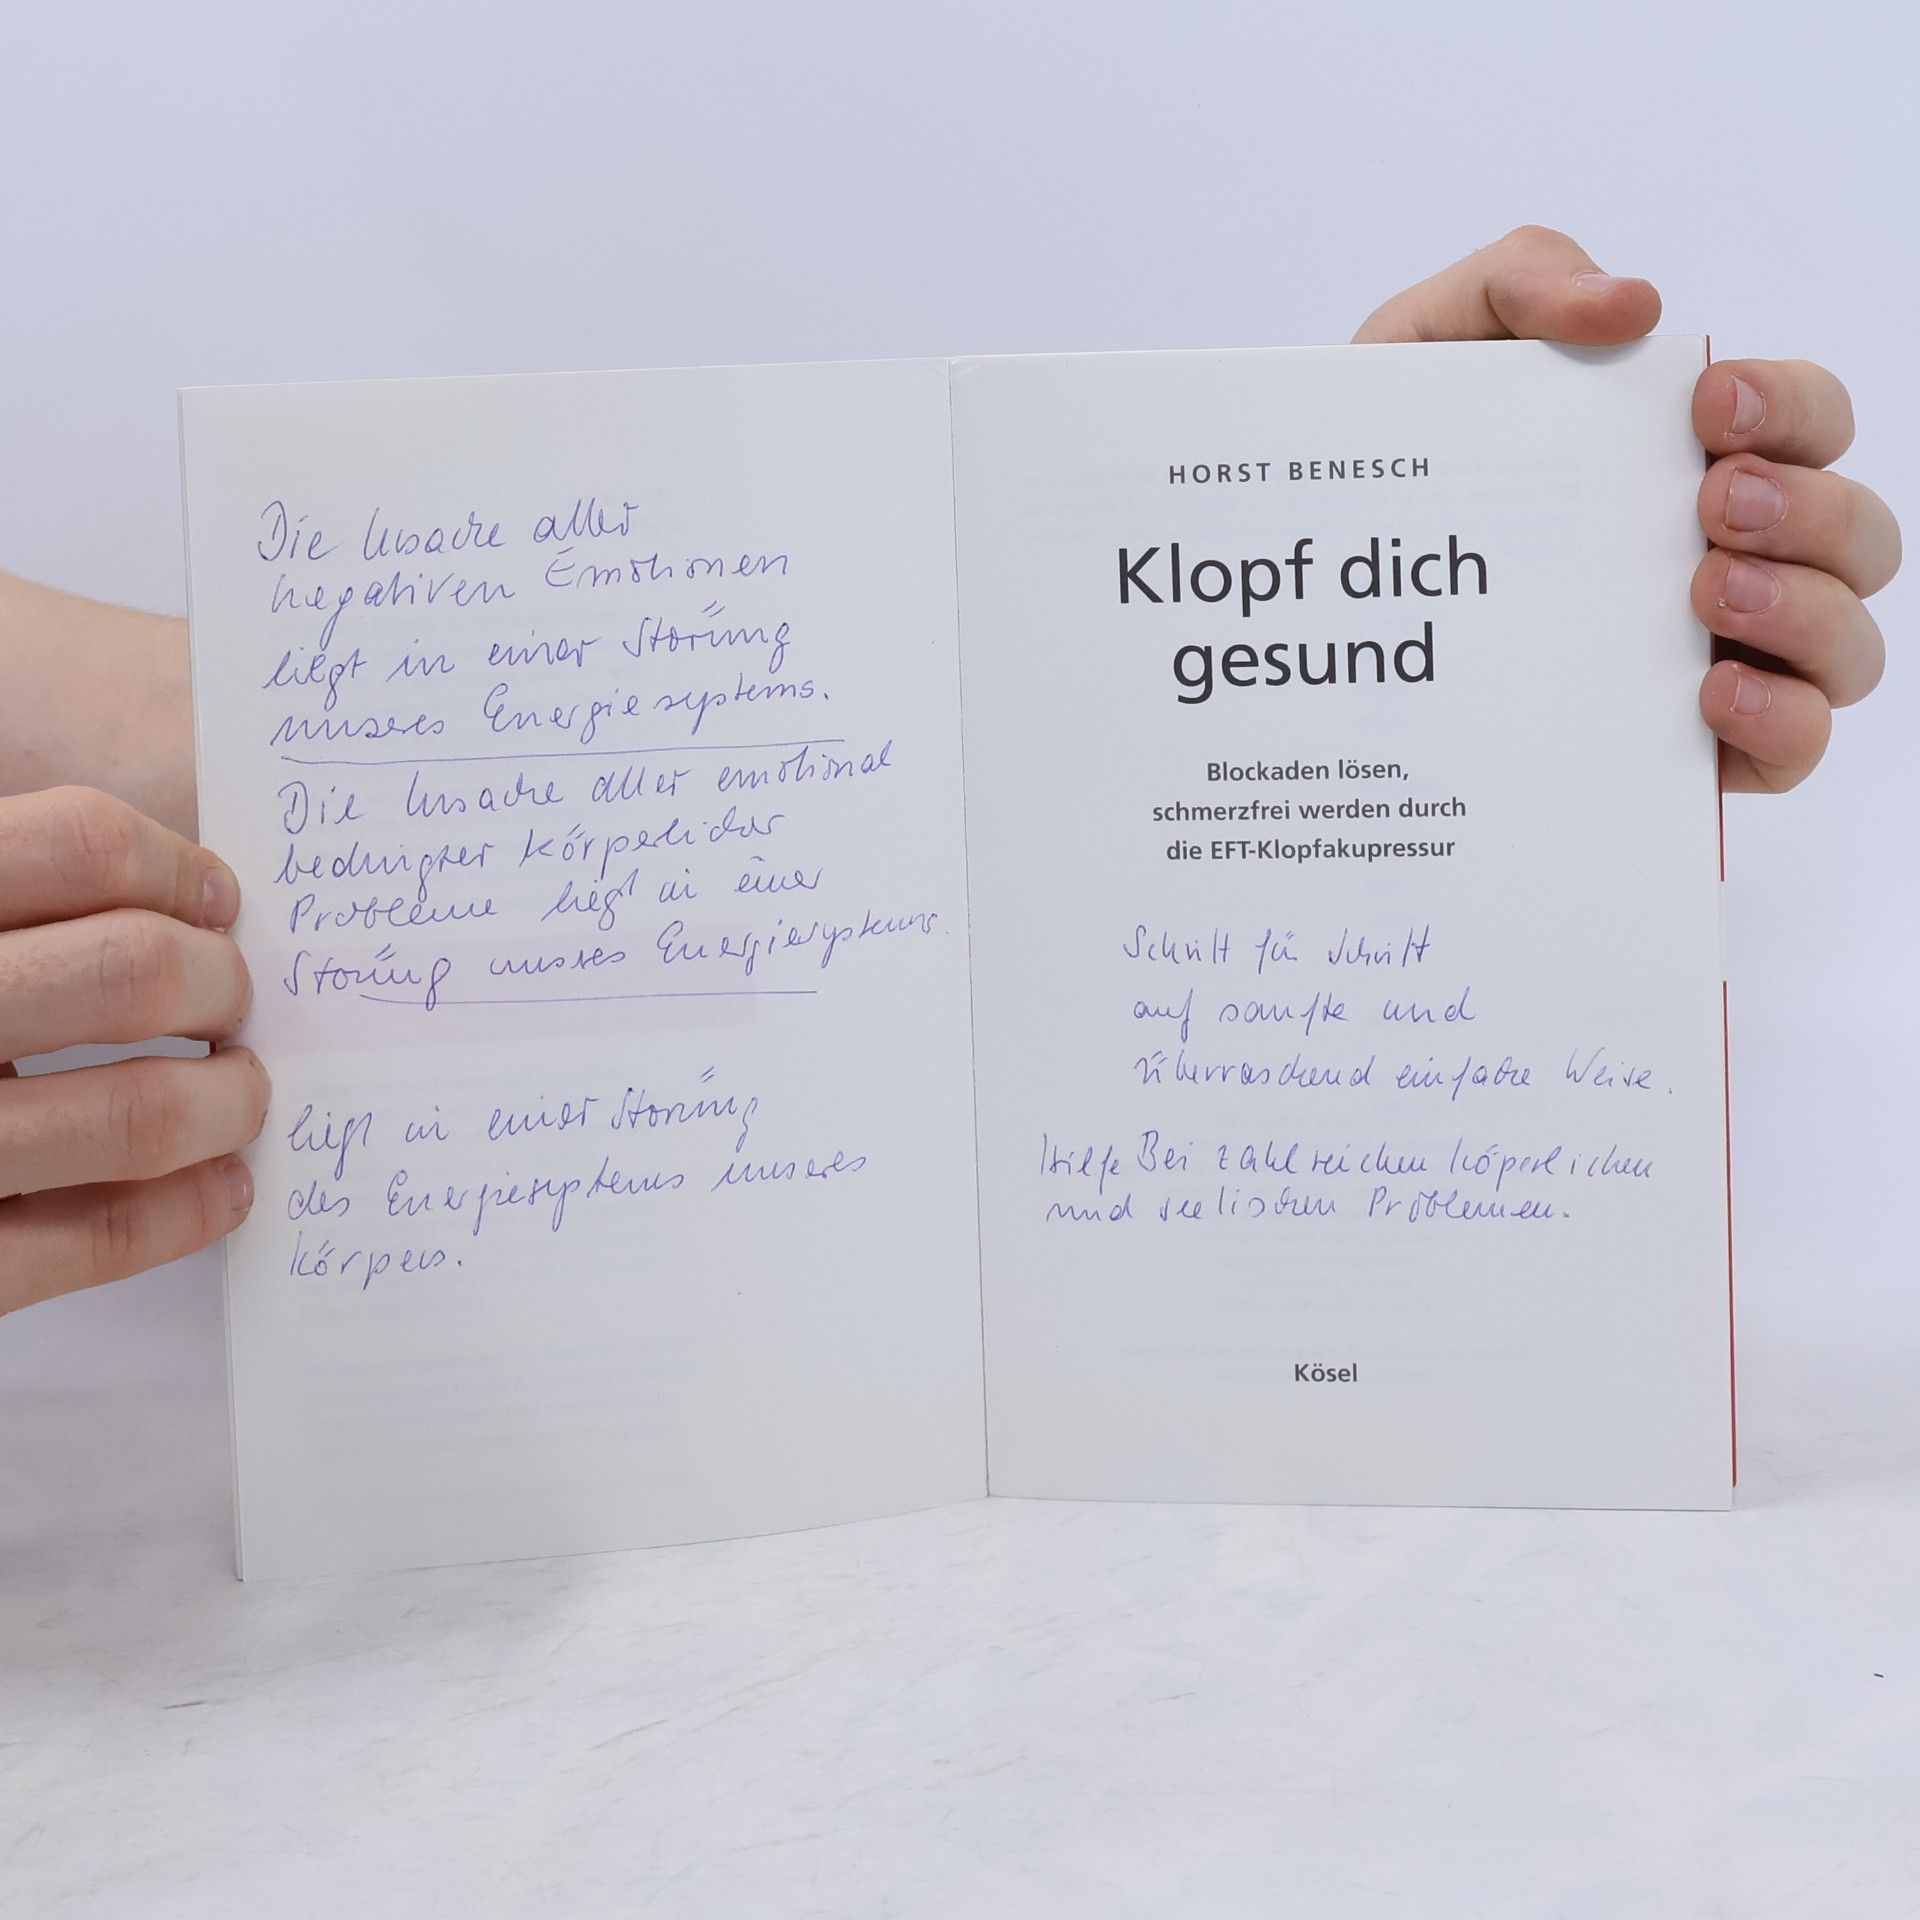 Die Ursache aller
negativen Emotionen
liegt in einer Störung
unseres Energiesystems.
Die Ursache aller emotional
bedingter körperlicher
Probleme liegt in einer
Störung unseres Energiesystems.
liegt in einer Störung
des Energiesystems unseres
Körpers.
HORST BENESCH
Klopf dich
gesund
Blockaden lösen,
schmerzfrei werden durch
die EFT-Klopfakupressur
Schritt für Schritt
auf sanfte und
überraschend einfache Weise.
Hilfe Bei zahlreichen körperlichen
und seelischen Problemen.
Kösel